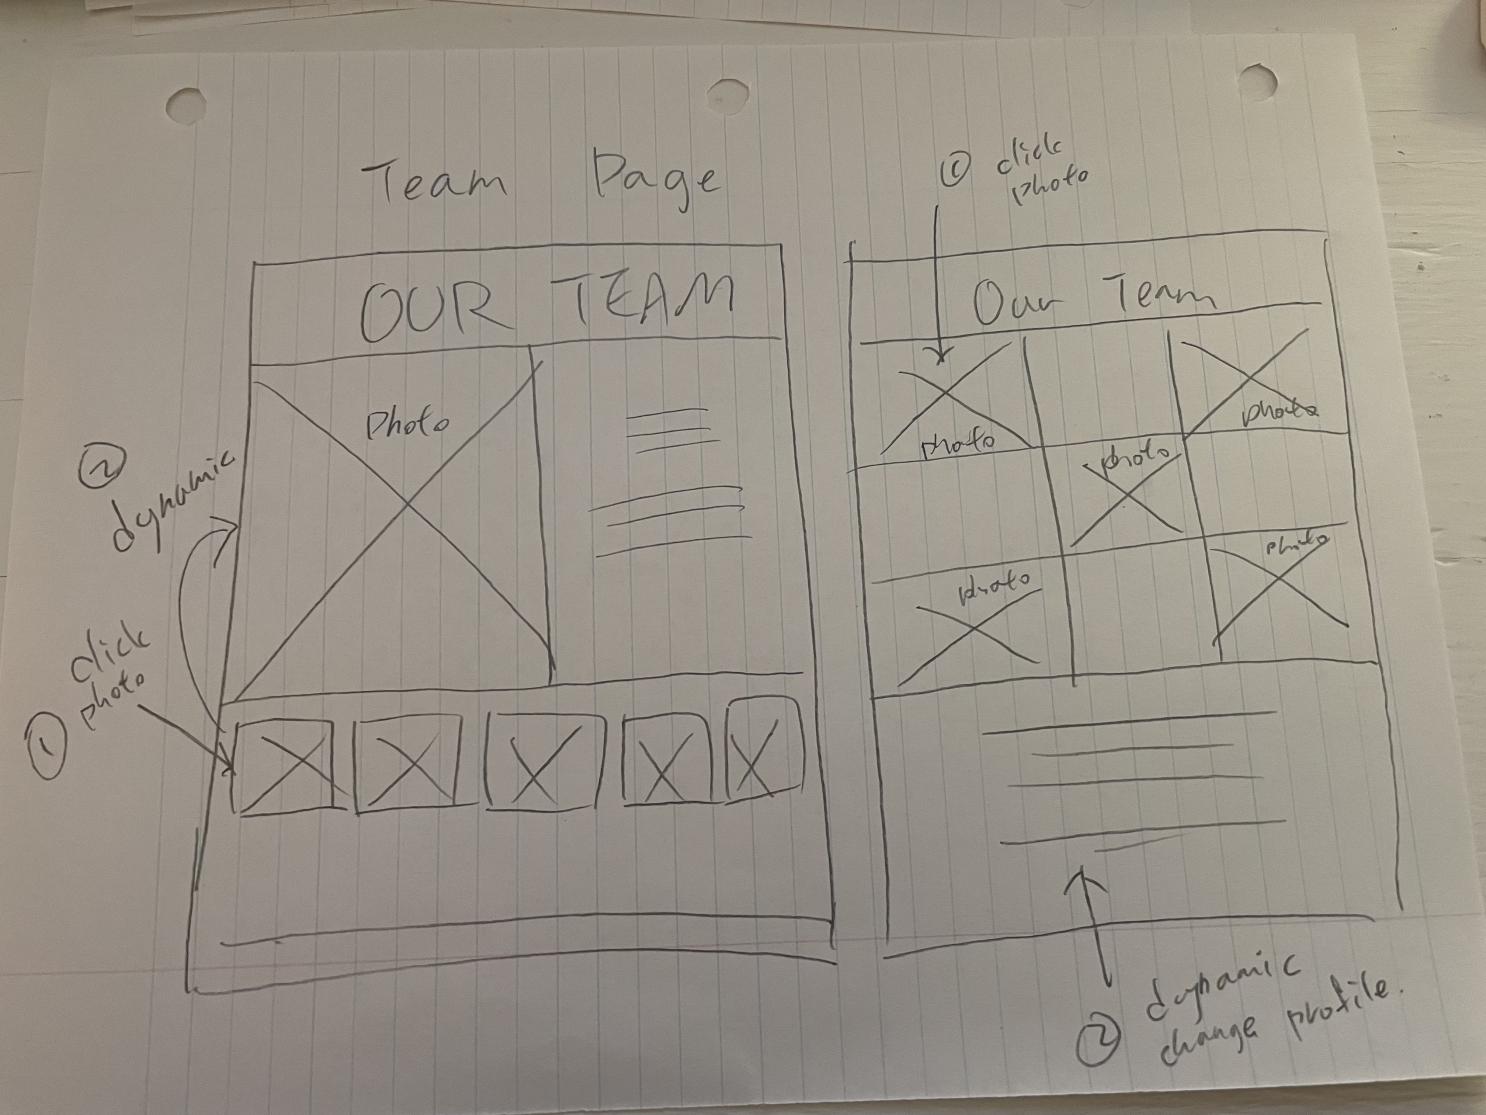 Team Page
OUR TEAM
Photo
②
dynamic
click
photo
①
① click
photo
Our Team
photo
photo
photo
photo
photo
② dynamic
change profile.